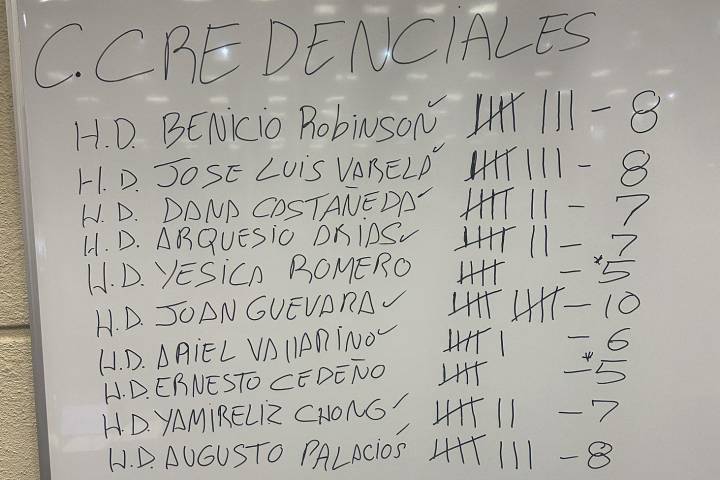 C. CREDENCIALES
H.D. BENICIO ROBINSON ✓ 𝍸 III - 8
H.D. JOSE LUIS VARELA ✓ 𝍸 III - 8
H.D. DANA CASTAÑEDA ✓ 𝍸 II - 7
H.D. ARQUESIO ARIAS ✓ 𝍸 II - 7
H.D. YESICA ROMERO 𝍸 - *5
H.D. JUAN GUEVARA ✓ 𝍸 𝍸 - 10
H.D. ARIEL VALLARINO ✓ 𝍸 I - 6
H.D. ERNESTO CEDEÑO 𝍸 - *5
H.D. YAMIRELIZ CHONG ✓ 𝍸 II - 7
H.D. AUGUSTO PALACIOS ✓ 𝍸 III - 8